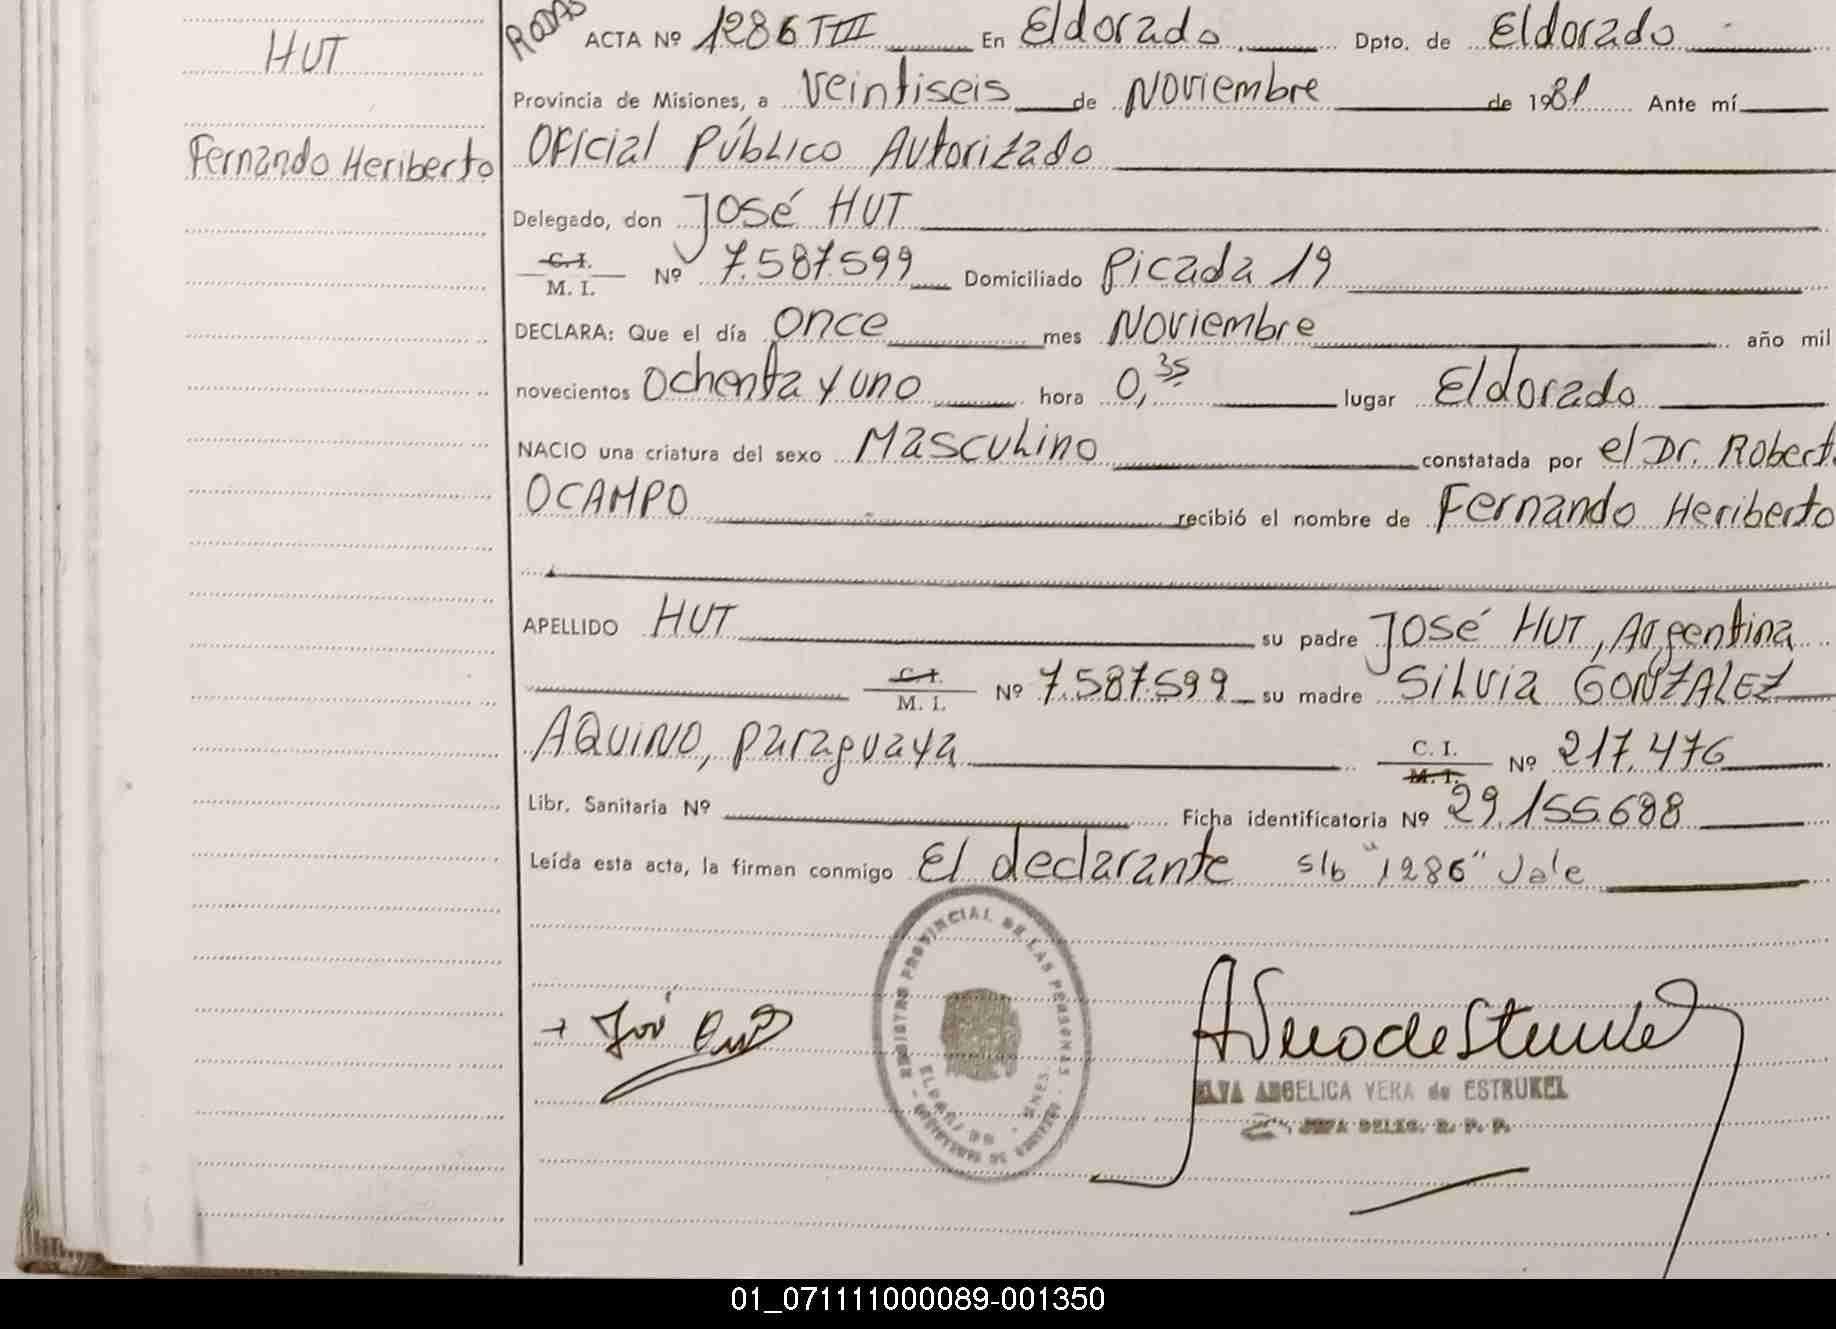 HUT
Fernando Heriberto
RODAS
ACTA Nº 1286 TIII En Eldorado Dpto. de Eldorado
Provincia de Misiones, a Veintiseis de Noviembre de 1981 Ante mí
Oficial Público Autorizado
Delegado, don José HUT
C. I.
M. I. Nº 7.587.599 Domiciliado Picada 19
DECLARA: Que el día once mes Noviembre año mil
novecientos ochenta y uno hora 0,35 lugar Eldorado
NACIO una criatura del sexo Masculino constatada por el Dr. Robert
OCAMPO recibió el nombre de Fernando Heriberto
APELLIDO HUT su padre José HUT, Argentina
C. I.
M. I. Nº 7.587.599 su madre Silvia GONZALEZ
AQUINO, paraguaya C. I. Nº 217.476
M. I.
Libr. Sanitaria Nº Ficha identificatoria Nº 29.155.688
Leída esta acta, la firman conmigo El declarante s/b "1286" Vale
REGISTRO PROVINCIAL DE LAS PERSONAS
José Hut
ELVA ANGELICA VERA de ESTRUKEL
JEFA DELEG. R. P. P.
01_071111000089-001350